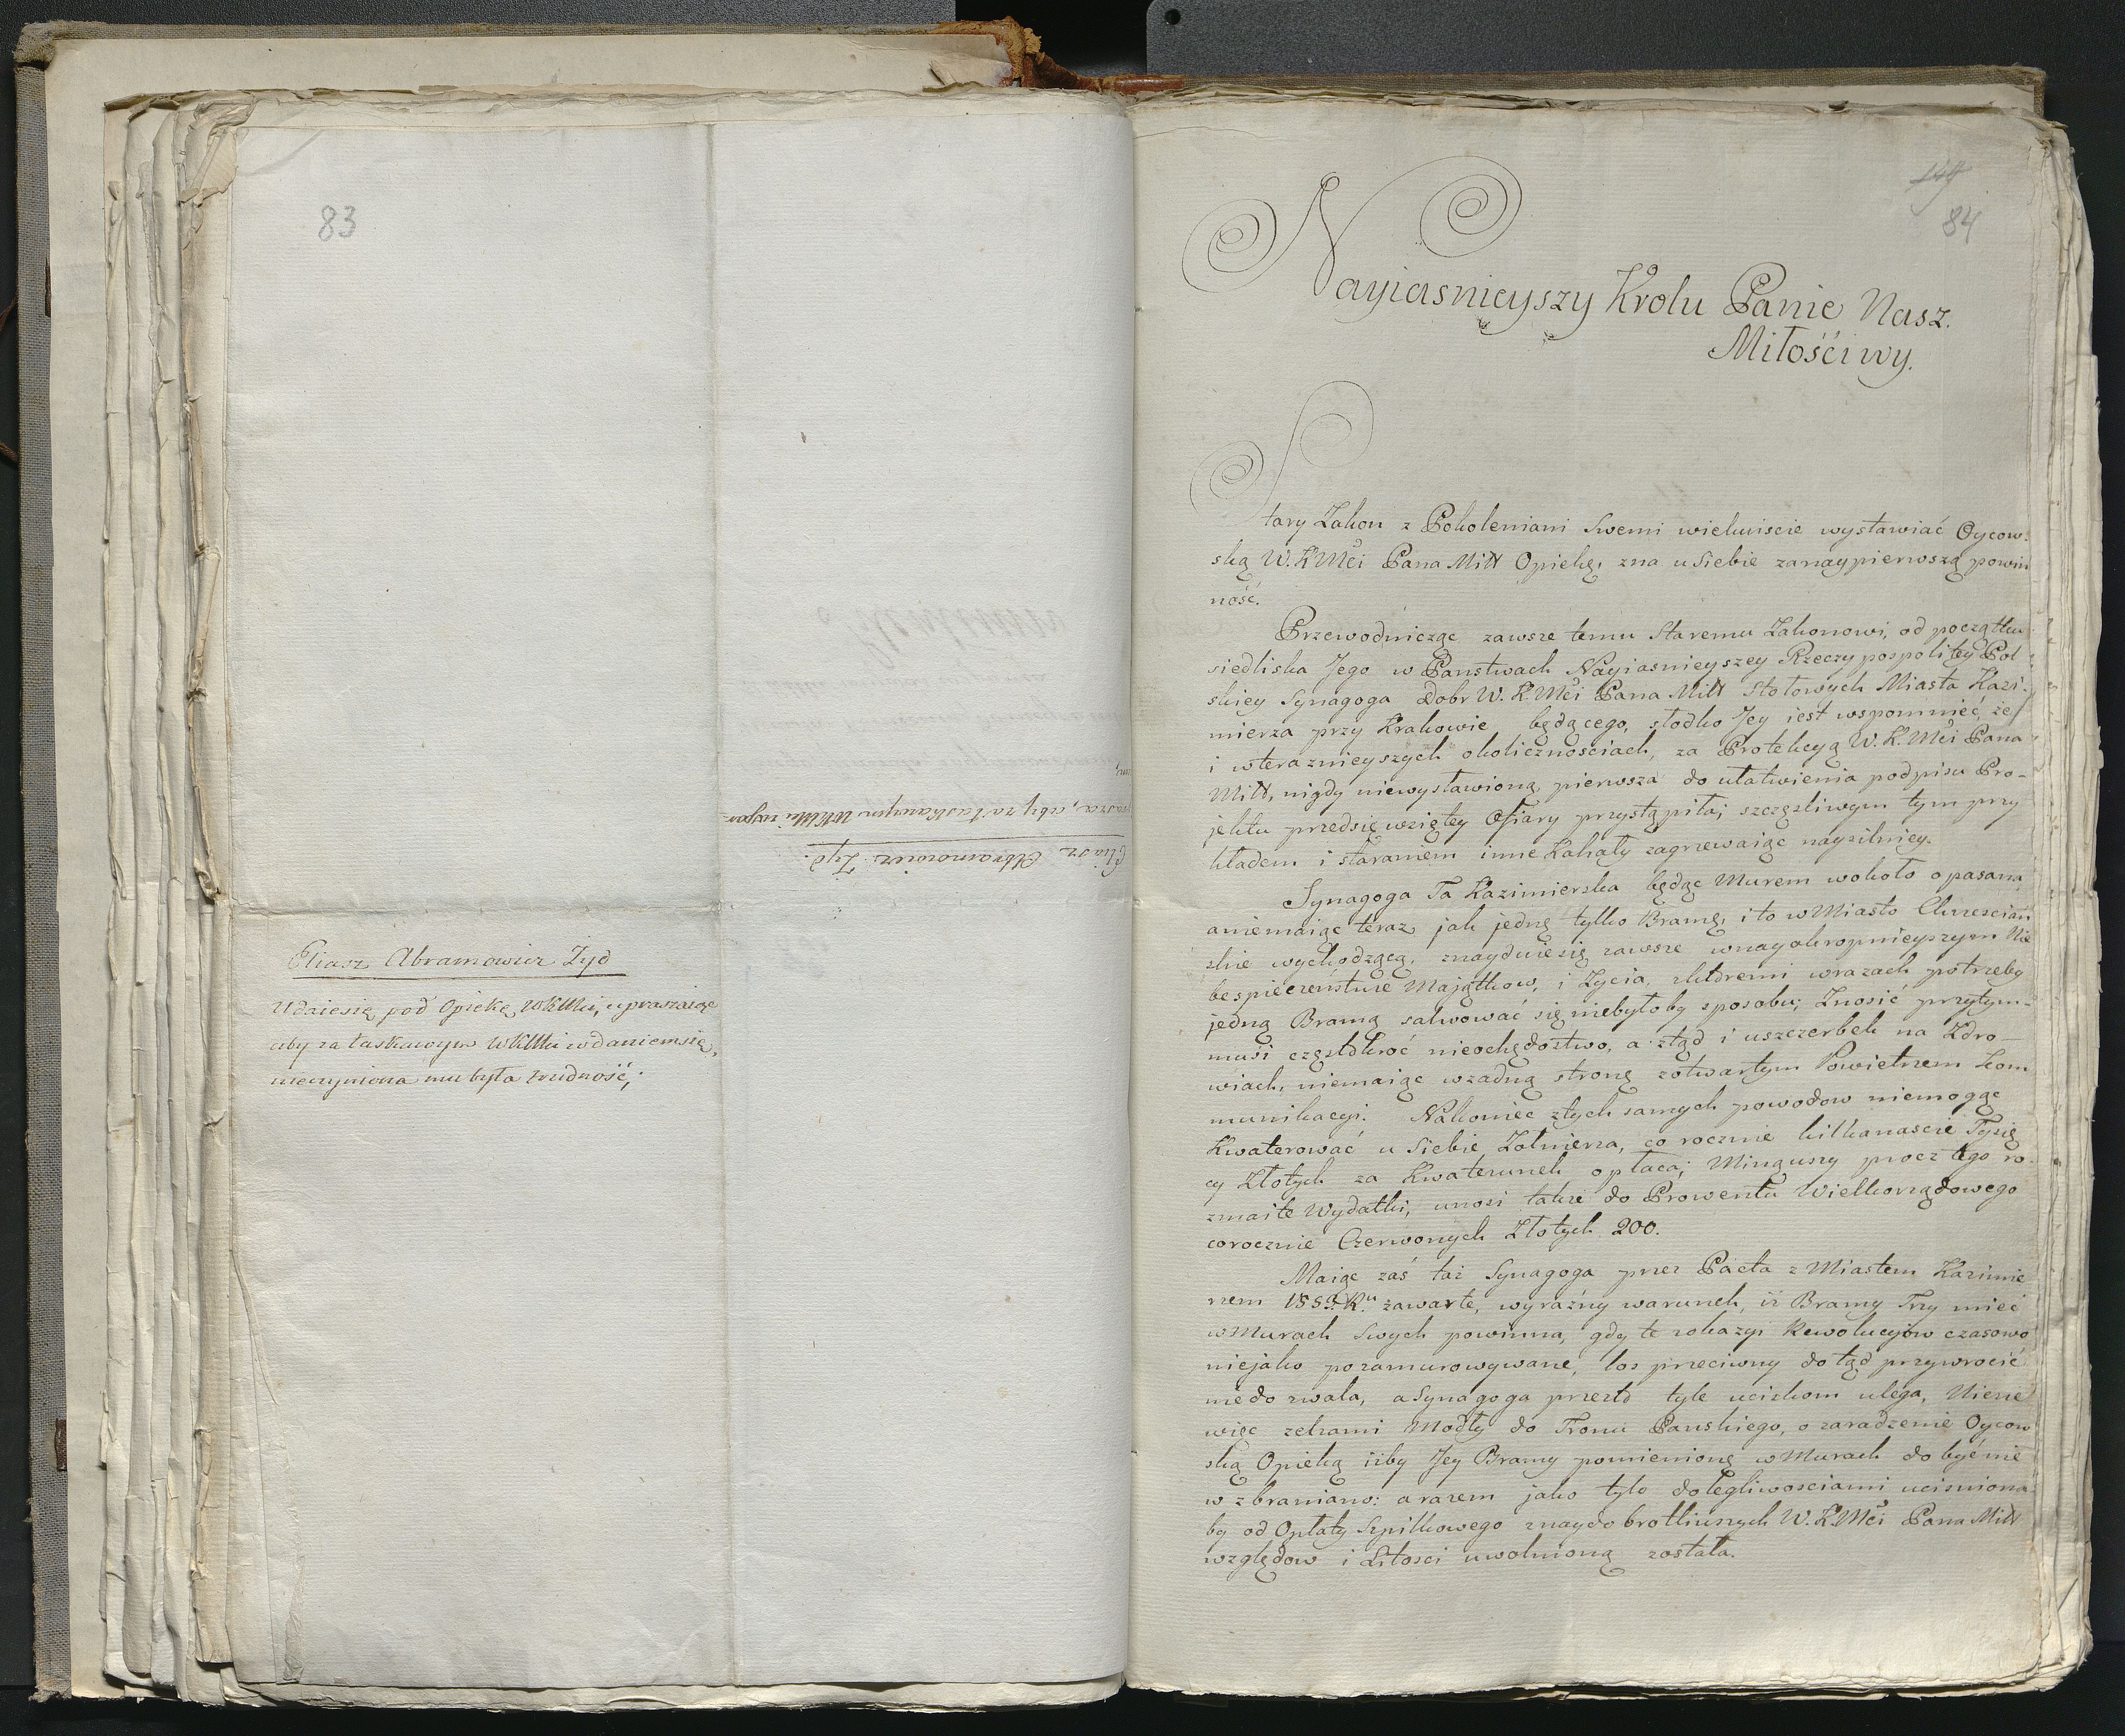 83
Eliasz Abramowicz Żyd.
prasza, aby za łaskawym WKMci wspar-
Eliasz Abramowicz Żyd
Udaiesię pod Opiekę WKMci, upraszaiąc
aby za łaskawym WKMci wdaniemsię,
nieczyniona mu była trudność,
149
84
Nayiasnieyszy Krolu Panie Nasz.
Miłościwy.
Stary Zakon z Pokoleniami Swemi wiekuiscie wystawiać Oycow-
ską W.KMći Pana Miłł Opiekę, zna u Siebie zanaypierwszą powin
ność.
Przewodnicząc zawsze temu Staremu Zakonowi, od początku
siedliska Jego w Panstwach Nayiasnieyszey Rzeczypospolitey Pol
skiey Synagoga Dobr W.K.Mći Pana Miłł Stołowych Miasta Kazi-
mierza przy Krakowie będącego, słodko Jey iest wspomnieć, że
i wteraznieyszych okolicznościach, za Protekcyą W.K.Mći Pana
Miłł, nigdy niewysławioną, pierwsza do ułatwienia podpisu Pro-
jektu przedsięwziętey Ofiary przystąpiła; szczęsliwym tym przy
kładem i staraniem inne Kahały zagrzewaiąc naysilniey.
Synagoga Ta Kazimierska będąc Murem wokoło opasana
aniemaiąc teraz jak jednę tylko Bramę, i to w Miasto Chrzescian
skie wychodzącą, znayduiesię zawsze wnayokropnieyszym Nie
bespieczeństwie Majątkow, i Zycia, zktóremi wrazach potrzeby
jedną Bramą salwować się niebyłoby sposobu; Znosić przytym
musi częstokroć nieochędostwo, a ztąd i uszczerbek na Zdro-
wiach, niemaiąc wzadną stronę zotwartym Powietrzem Kom
munikacyi. Nakoniec ztych samych powodow niemogąc
Kwaterować u Siebie Zołnierza, co rocznie kilkanascie Tysię
cy Złotych za Kwaterunek opłaca; Minąwszy procz tego ro-
zmaite Wydatki, wnosi także do Prowentu Wielkorządowego
corocznie Czerwonych Złotych 200.
Maiąc zaś taż Synagoga przez Pacta z Miastem Kazimie
rzem zawarte, wyraźny warunek, iż Bramy Trzy mieć
w Murach Swych powinna, gdy te zokazyi Rewolucyiow czasowo
niejako pozamurowywane, los przeciwny dotąd przywrocić
niedozwala, a Synagoga przezto tyle uciskom ulega, Niesie
więc zełzami Modły do Tronu Panskiego, o zaradzenie Oycow
ską Opieką iżby Jey Bramy pomienione w Murach dobyć nie
wzbraniano: a razem jako tylo dolegliwosciami ucisniona
by od Opłaty Szpilkowego znaydobrotliwszych W.K.Mći Pana Miłł
względow i Litosci uwolnioną została.